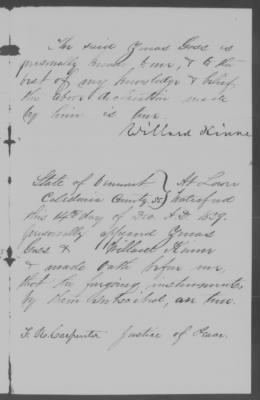 The said Zenas Goss is
personally known to me, & to the
best of my knowledge & belief,
the above declaration made
by him is true.
Willard Kinne
State of Vermont } At Lower
Caledonia County SS } Waterford
this 14th day of Dec. A.D. 1839.
personally appeared Zenas
Goss & Willard Kinne
& made Oath before me,
that the forgoing instruments
by them Subscribed, are true.
Justice of Peace